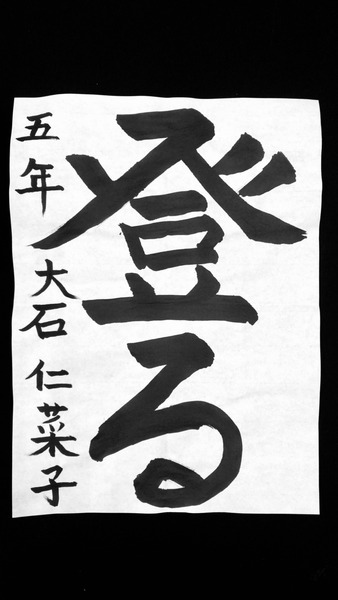 登る
五年 大石 仁菜子